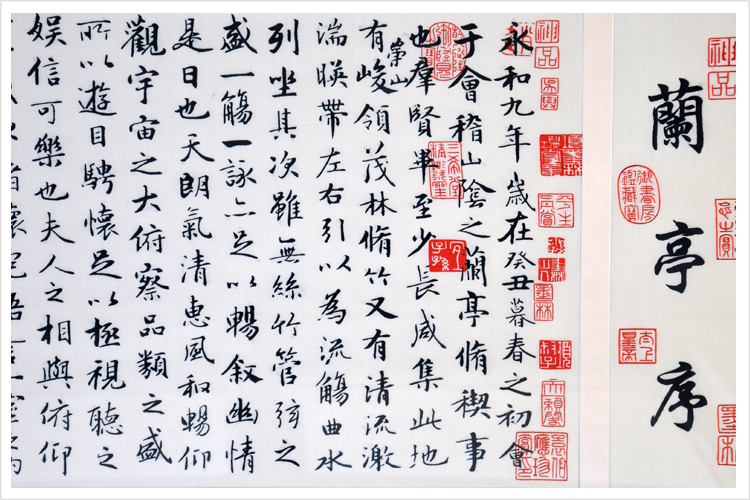 蘭亭序
永和九年歲在癸丑暮春之初會
于會稽山陰之蘭亭脩稧事
也羣賢畢至少長咸集此地
崇山
有峻領茂林脩竹又有清流激
湍暎帶左右引以為流觴曲水
列坐其次雖無絲竹管弦之
盛一觴一詠亦足以暢敘幽情
是日也天朗氣清惠風和暢仰
觀宇宙之大俯察品類之盛
所以遊目騁懷足以極視聽之
娛信可樂也夫人之相與俯仰
御書房鑑藏寶
神品
三希堂精鑑璽
墨林